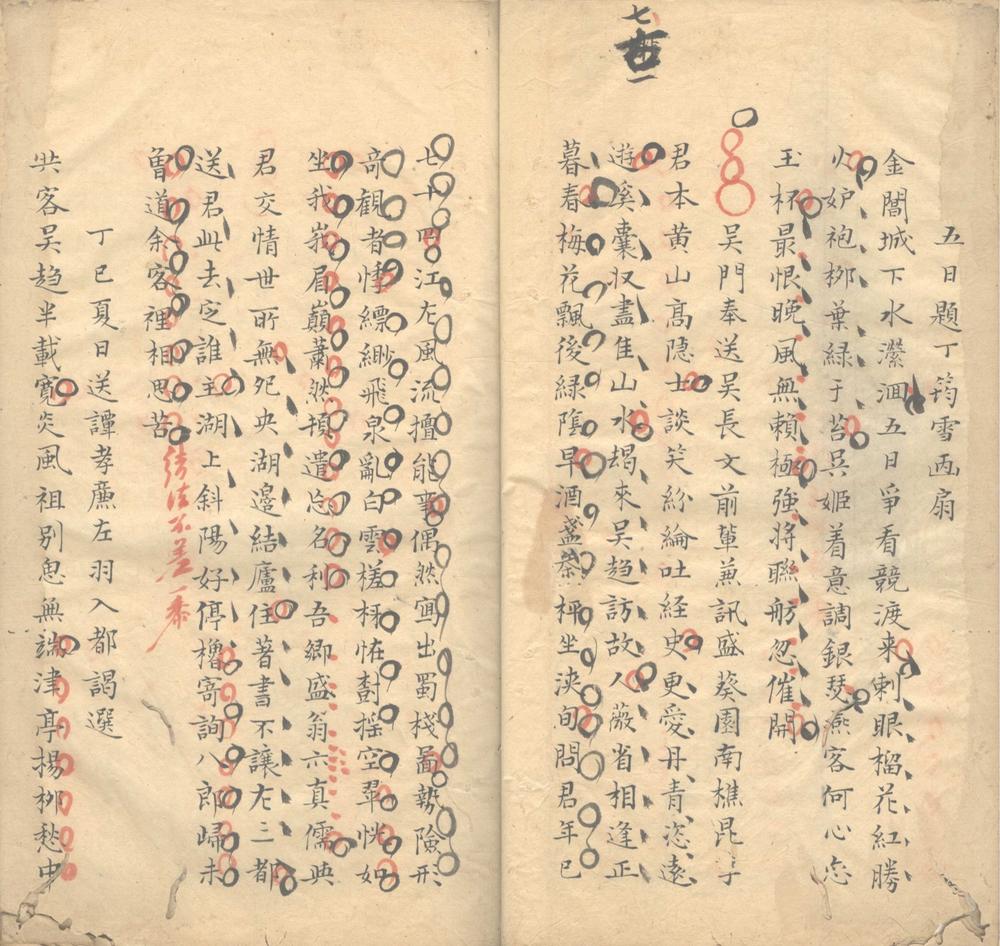 七古一
五日題丁筠雪画扇
金閶城下水瀠洄五日爭看競渡来刺眼榴花紅勝
火妒袍栁葉綠于苔吳姬着意調銀琴燕客何心恋
玉杯最恨晚風無賴極強將聯舫忽催開
吳門奉送吳長文前輩兼訊盛葵園南樵昆子
君本黄山高隐士談笑紛綸吐経史更愛丹青恣遠
遊奚囊収盡佳山水朅来吴趋訪故人薇省相逢正
暮春梅花飄後緑陰早酒盞棊枰坐浹旬問君年已
七十四江左風流擅能事偶然画出蜀棧圖勢險形
奇觀者悸縹緲飛泉亂白雲槎枒怪樹摇空翠恍如
坐我峩眉巔蕭然頓遣忘名利吾鄉盛翁六真儒與
君交情世所無夗央湖邊結廬住著書不讓左三都
送君此去定誰主湖上斜陽好停櫓寄詢八郎歸未
曾道余客裡相思苦
結法不差一黍
丁巳夏日送譚孝廉左羽入都謁選
共客吴趋半載寬炎風祖别息無端津亭楊栁愁中